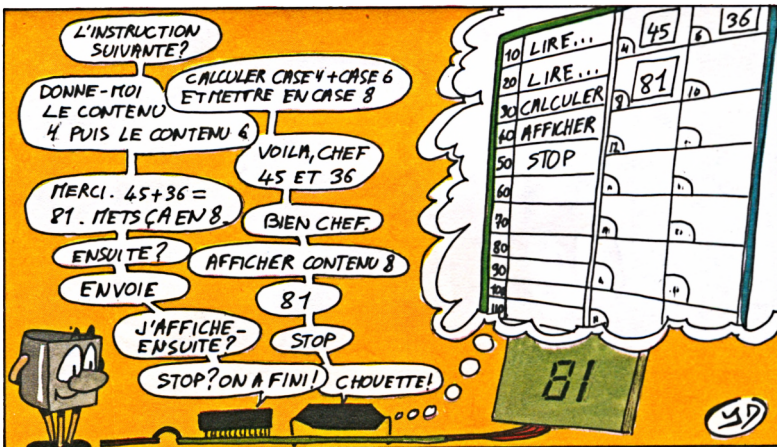 L'INSTRUCTION
SUIVANTE?
CALCULER CASE 4 + CASE 6
ET METTRE EN CASE 8
DONNE-MOI
LE CONTENU
4 PUIS LE CONTENU 6
VOILA, CHEF
45 ET 36
MERCI. 45+36=
81. METS ÇA EN 8.
BIEN CHEF.
ENSUITE?
AFFICHER CONTENU 8
ENVOIE
81
J'AFFICHE-
ENSUITE?
STOP
STOP? ON A FINI!
CHOUETTE!
10 LIRE... 4 45 6 36
20 LIRE...
30 CALCULER 8 81 10
40 AFFICHER 12
50 STOP
60
70
80
90
100
110
81
YD